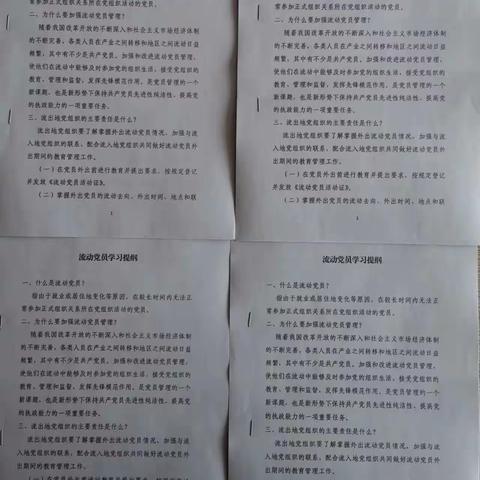 常参加正式组织关系所在党组织活动的党员。
二、为什么要加强流动党员管理?
随着我国改革开放的不断深入和社会主义市场经济体制
的不断完善,各类人员在产业之间转移和地区之间流动日益
频繁,其中有不少是共产党员。加强和改进流动党员管理,
使他们在流动中能够及时参加党的组织生活,接受党组织的
教育、管理和监督,发挥先锋模范作用,是党员管理的一个
新课题,也是新形势下保持共产党员先进性纯洁性、提高党
的执政能力的一项重要任务。
三、流出地党组织的主要责任是什么?
流出地党组织要了解掌握外出流动党员情况,加强与流
入地党组织的联系,配合流入地党组织共同做好流动党员外
出期间的教育管理工作。
(一)在党员外出前进行教育并提出要求,按规定登记
并发放《流动党员活动证》。
(二)掌握外出党员的流动去向、外出时间、地点和联
1
常参加正式组织关系所在党组织活动的党员。
二、为什么要加强流动党员管理?
随着我国改革开放的不断深入和社会主义市场经济体制
的不断完善,各类人员在产业之间转移和地区之间流动日益
频繁,其中有不少是共产党员。加强和改进流动党员管理,
使他们在流动中能够及时参加党的组织生活,接受党组织的
教育、管理和监督,发挥先锋模范作用,是党员管理的一个
新课题,也是新形势下保持共产党员先进性纯洁性、提高党
的执政能力的一项重要任务。
三、流出地党组织的主要责任是什么?
流出地党组织要了解掌握外出流动党员情况,加强与流
入地党组织的联系,配合流入地党组织共同做好流动党员外
出期间的教育管理工作。
(一)在党员外出前进行教育并提出要求,按规定登记
并发放《流动党员活动证》。
(二)掌握外出党员的流动去向、外出时间、地点和联
1
流动党员学习提纲
一、什么是流动党员?
指由于就业或居住地变化等原因,在较长时间内无法正
常参加正式组织关系所在党组织活动的党员。
二、为什么要加强流动党员管理?
随着我国改革开放的不断深入和社会主义市场经济体制
的不断完善,各类人员在产业之间转移和地区之间流动日益
频繁,其中有不少是共产党员。加强和改进流动党员管理,
使他们在流动中能够及时参加党的组织生活,接受党组织的
教育、管理和监督,发挥先锋模范作用,是党员管理的一个
新课题,也是新形势下保持共产党员先进性纯洁性、提高党
的执政能力的一项重要任务。
三、流出地党组织的主要责任是什么?
流出地党组织要了解掌握外出流动党员情况,加强与流
入地党组织的联系,配合流入地党组织共同做好流动党员外
出期间的教育管理工作。
流动党员学习提纲
一、什么是流动党员?
指由于就业或居住地变化等原因,在较长时间内无法正
常参加正式组织关系所在党组织活动的党员。
二、为什么要加强流动党员管理?
随着我国改革开放的不断深入和社会主义市场经济体制
的不断完善,各类人员在产业之间转移和地区之间流动日益
频繁,其中有不少是共产党员。加强和改进流动党员管理,
使他们在流动中能够及时参加党的组织生活,接受党组织的
教育、管理和监督,发挥先锋模范作用,是党员管理的一个
新课题,也是新形势下保持共产党员先进性纯洁性、提高党
的执政能力的一项重要任务。
三、流出地党组织的主要责任是什么?
流出地党组织要了解掌握外出流动党员情况,加强与流
入地党组织的联系,配合流入地党组织共同做好流动党员外
出期间的教育管理工作。